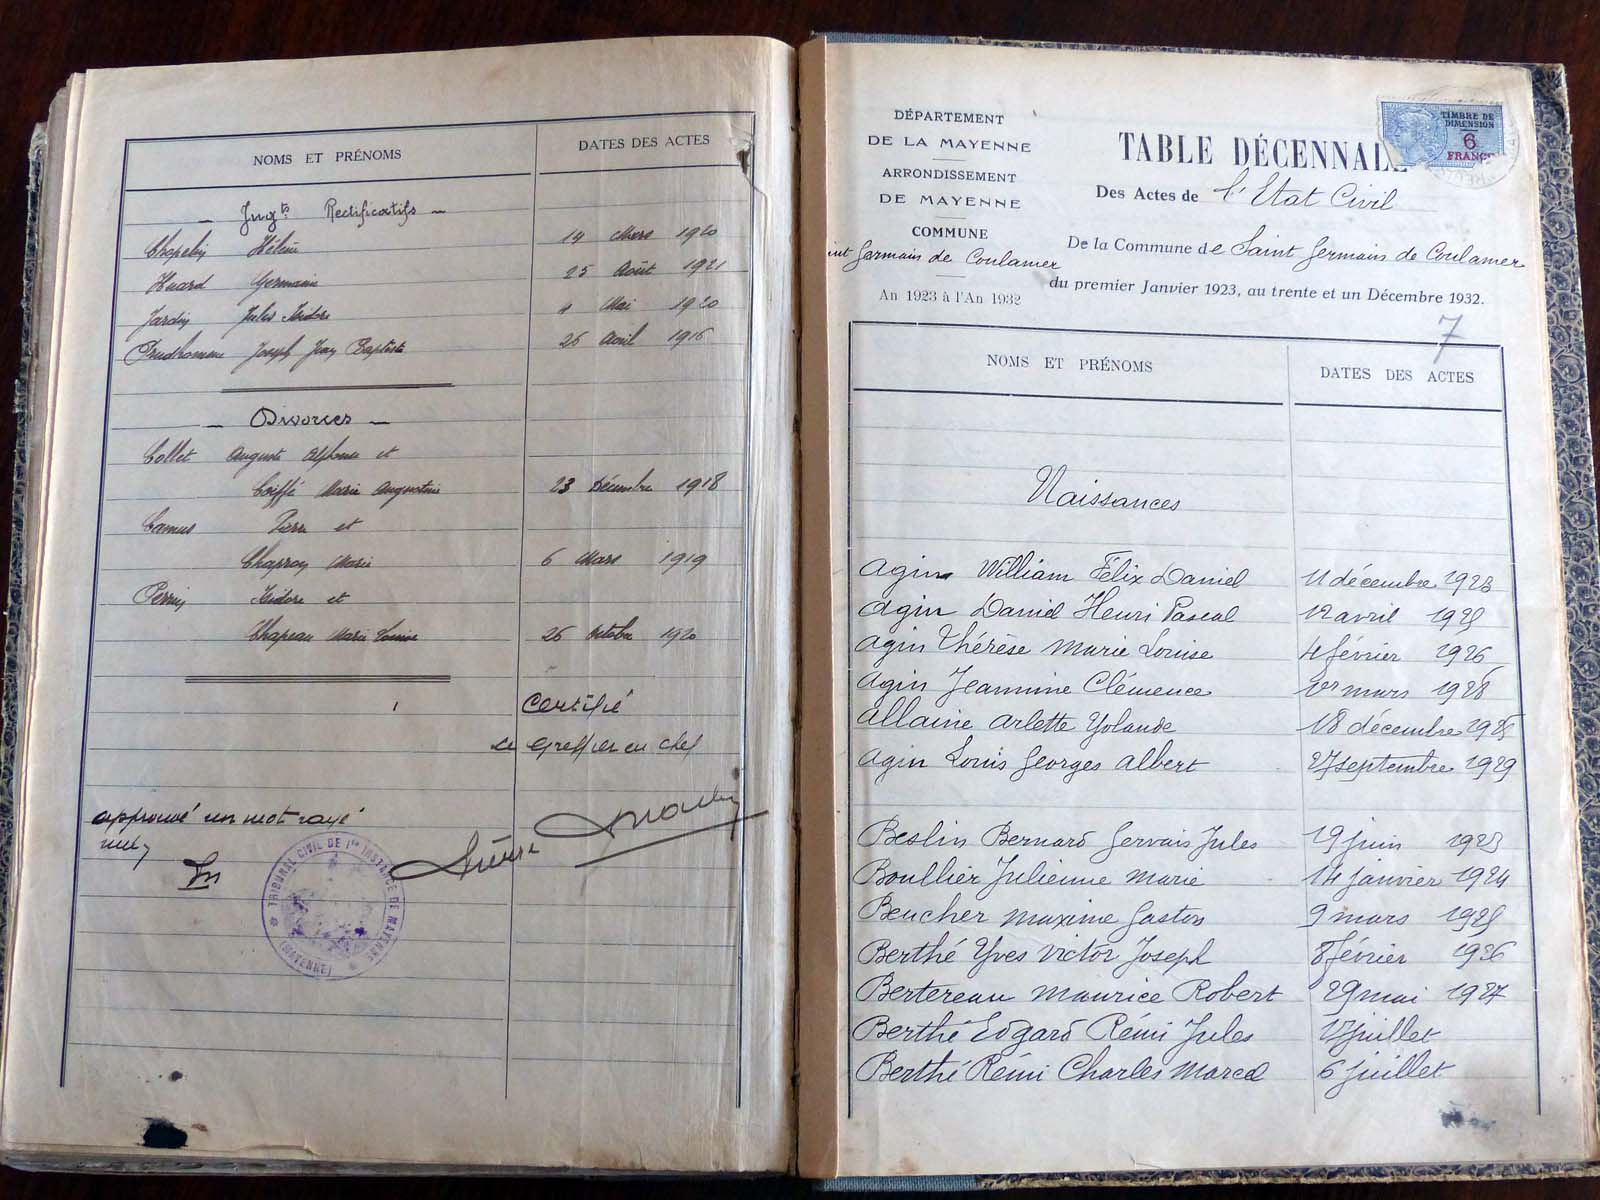 NOMS ET PRÉNOMS
DATES DES ACTES
Jugts Rectificatifs
Chapelin Hélène 14 Mars 1920
Huard Germain 25 Août 1921
Jardin Jules Isidore Mai 1920
Prudhomme Joseph Jean Baptiste 26 Avril 1916
Divorces
Collet Auguste Alphonse et
Coiffé Marie Augustine 23 Décembre 1918
Camus Pierre et
Marie 6 Mars 1919
Perrin Isidore et
Chapeau Marie Louise 26 Octobre 1920
Certifié
Le Greffier en chef
approuvé un mot rayé
nul
TRIBUNAL CIVIL DE 1re INSTANCE DE MAYENNE
(MAYENNE)
DÉPARTEMENT
DE LA MAYENNE
ARRONDISSEMENT
DE MAYENNE
COMMUNE
int Germain de Coulamer
An 1923 à l'An 1932
TABLE DÉCENNALE
Des Actes de l'Etat Civil
De la Commune de Saint Germain de Coulamer
du premier Janvier 1923, au trente et un Décembre 1932.
TIMBRE DE
DIMENSION
6
FRANCS
7
NOMS ET PRÉNOMS
DATES DES ACTES
Naissances
Agin William Félix Daniel 11 décembre 1923
Agin Daniel Henri Pascal 12 avril 1925
Agin Thérèse Marie Louise 4 février 1926
Agin Jeannine Clémence 1er mars 1928
Allaine Arlette Yolande 18 décembre 1928
Agin Louis Georges Albert 27 septembre 1929
Beslin Bernard Gervais Jules 19 juin 1923
Boullier Julienne Marie 14 janvier 1924
Beucher Maxime Gaston 9 mars 1925
Berthé Yves Victor Joseph 8 février 1926
Bertereau Maurice Robert 29 mai 1927
Berthé Edgard Rémi Jules juillet
Berthé Rémi Charles Marcel 6 juillet